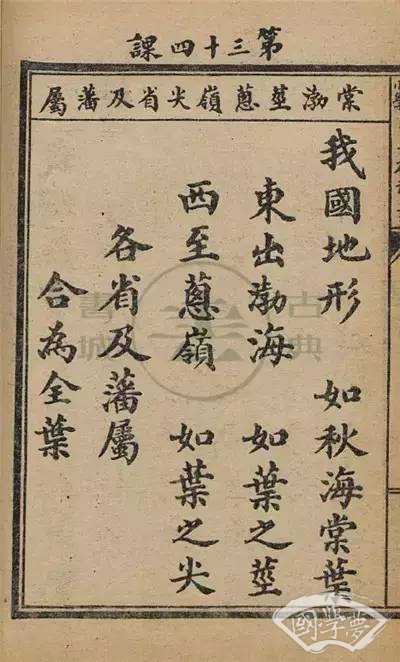 第三十四課
棠渤莖蔥嶺尖省及藩屬
我國地形 如秋海棠葉
東出渤海 如葉之莖
西至蔥嶺 如葉之尖
各省及藩屬
合為全葉
古典書城
國學夢